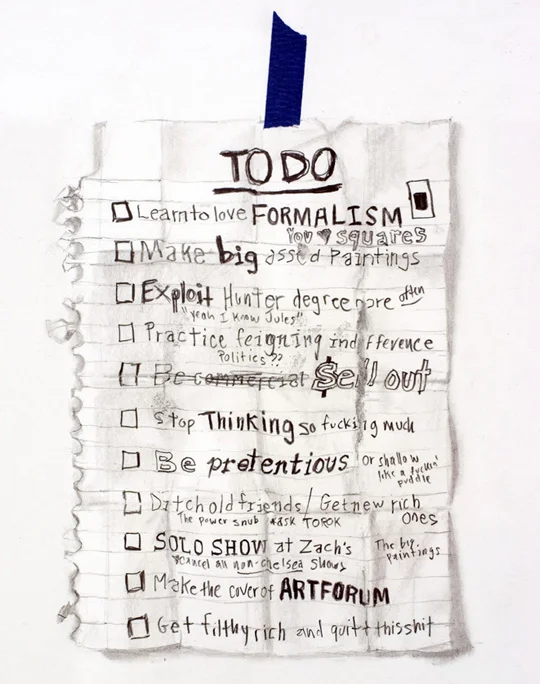 TO DO
Learn to love FORMALISM
You ♥ squares
Make big assed Paintings
Exploit Hunter degree more often
"Yeah I know Jules"
Practice feigning indifference
Politics??
Be commercial $ell out
Stop Thinking so fucking much
Be pretentious or shallow
like a fuckin'
puddle
Ditch old friends/Get new rich
ones
The power snub *ask TOROK
SOLO SHOW at Zach's The big
paintings
*Cancel all non-chelsea shows
Make the cover of ARTFORUM
Get filthy rich and quitt this shit